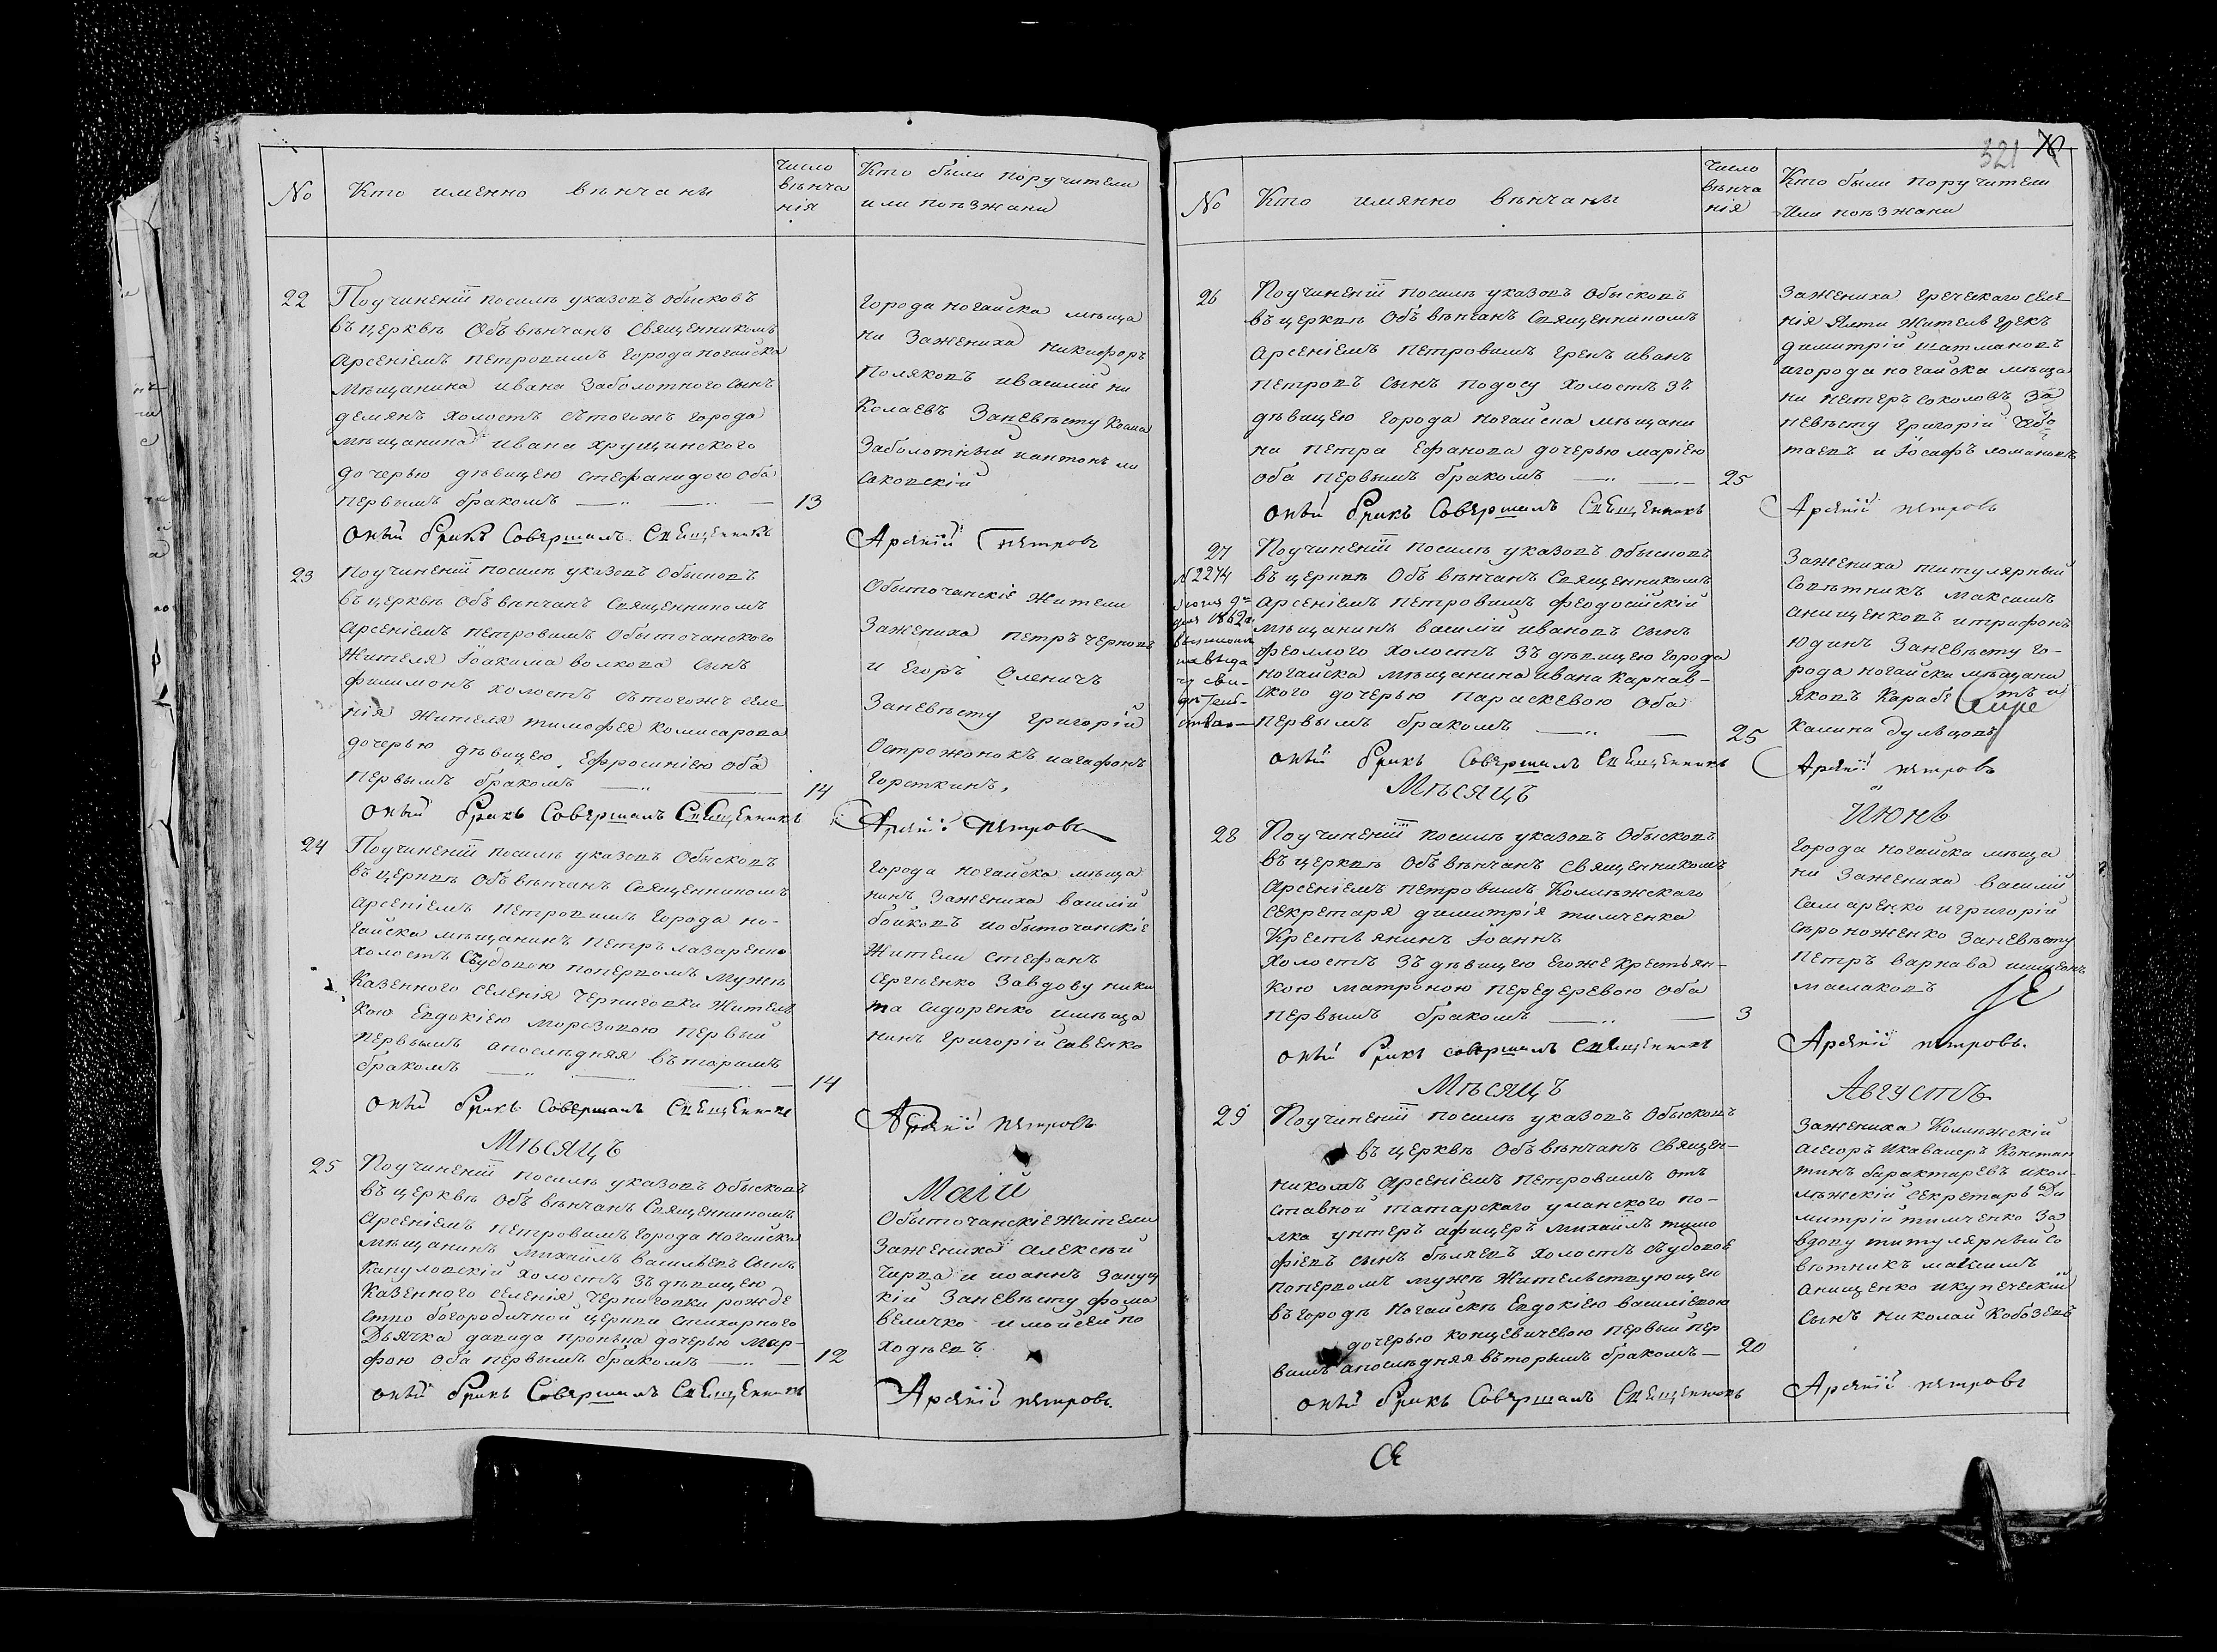 No
Кто именно вѣнчаны
Число
вѣнча
нія
Кто были поручители
или поѣзжани
22
Поучиненіи посилѣ указовъ обысковъ
въ церквѣ Объ вѣнчанъ Священникомъ
Арсеніемъ Петровимъ Города Ногайска
Мѣщанина Ивана Заболотного сынъ
демянъ холостъ сътогожъ города
мѣщанина Ивана Хрущинского
дочерью дѣвицею Стефанидого оба
первымъ бракомъ
13
Города Ногайска мѣща
ни Зажениха Никифоръ
Поляковъ иВасилій Ни
колаевъ Заневѣсту
Заболотный иАнтонъ ло
саковскій
оный бракъ Совершалъ Священникъ
Арсеній Петровъ
23
Поучиненіи посилѣ указовъ обысковъ
въ церквѣ Объ вѣнчанъ Священникомъ
Арсеніемъ Петровимъ Обыточанского
Жителя Іоакима Волкова сынъ
филимонъ холостъ сътогожъ селе
нія жителя Тимофея Комисарова
дочерью дѣвицею Ефросиніею оба
первымъ бракомъ
14
Обыточанскіе Жители
Зажениха Петръ Черновъ
и Егоръ Оленичъ
Заневѣсту Григорій
Острожнокъ иагафонъ
Горсткинъ,
оный бракъ Совершалъ Священникъ
Арсеній Петровъ
24
Поучиненіи посилѣ указовъ Обысковъ
въ церквѣ Объ вѣнчанъ Священникомъ
Арсеніемъ Петровимъ Города Но-
гайска мѣщанинъ Петръ Лазаренко
холостъ Съудовою поперьвомъ мужѣ
Казенного Селенія Черниговки Житель
кою Евдокіею Морозовою первый
первымъ апослѣдняя вѣторимъ
бракомъ
14
Города Ногайска мѣща
нинъ Зажениха Василій
бойковъ иобыточанскіе
Жители Стефанъ
Сергѣенко Завдову ники
та Сидоренко имѣща
нинъ Григорій Савенко
оный бракъ Совершалъ Священникъ
Арсеній Петровъ
Мѣсяцъ
Маій
25
Поучиненіи посилѣ указовъ Обысковъ
въ церквѣ Объ вѣнчанъ Священникомъ
Арсеніемъ Петровимъ Города Ногайска
мѣщанинъ Михаилъ Васильевъ Сынъ
Капуловскій холостъ Зъ дѣвицею
Казенного селенія Черниговки рожде
ство богородичной церкви стихарного
Дьячка давида дочерью Мар-
фою оба первымъ бракомъ
12
Обыточанскіе жители
Зажениха Алексѣй
Чирва и иоаннъ
кій Заневѣсту фома
величко и мойсей по
ходѣевъ
оный бракъ Совершалъ Священникъ
Арсеній Петровъ.
321
No
Кто имянно вѣнчаны
Число
вѣнча
нія
Кто были поручители
Или поѣзжани
26
Поучиненіи посилѣ указовъ Обысковъ
въ церквѣ Объ вѣнчанъ Священникомъ
Арсеніемъ Петровимъ грекъ Иванъ
Петровъ сынъ Подосу холостъ Зъ
дѣвицею города Ногайска мѣщани
на Петра Ефанова дочерью Маріею
оба первымъ бракомъ
25
Зажениха греческаго селе
нія Ялти житель грекъ
Димитрій Шатмановъ
игорода Ногайска мѣща
ни Петеръ Соколовъ За
невѣсту Григорій Чебо
таевъ и Іосафъ Ломановъ
оный бракъ Совершалъ Священникъ
Арсеній Петровъ
27
N 2274
Поучиненіи посилѣ указовъ Обысковъ
въ церквѣ Объ вѣнчанъ Священникомъ
Арсеніемъ Петровимъ Феодосійскій
мѣщанинъ Василій Ивановъ сынъ
холостъ Зъ дѣвицею города
Ногайска мѣщанина Ивана Карнав-
ского дочерью Параскевою Оба
первымъ бракомъ
25
Зажениха титулярный
Совѣтникъ Максимъ
Анищенковъ итрифонъ
Юдинъ Заневѣсту го-
рода Ногайска мѣщани
Яковъ
Калина Дулѣцовъ
оный бракъ Совершалъ Священникъ
Арсеній Петровъ
Мѣсяцъ
Июнь
28
Поучиненіи посилѣ указовъ Обысковъ
въ церквѣ Объ вѣнчанъ Священникомъ
Арсеніемъ Петровимъ Коллѣжскаго
Секретаря Димитрія Тимченка
Крестьянинъ Іоаннъ
холостъ Зъ дѣвицею егоже крестьян-
кою Матроною Передеревою Оба
первымъ бракомъ
3
Города Ногайска мѣща
ни Зажениха Василій
Самаренко игригорій
Сѣроноженко Заневѣсту
Петръ Варнава
маслаковъ
оный бракъ совершалъ Священникъ
Арсеній Петровъ.
Мѣсяцъ
Августъ
29
Поучиненіи посилѣ указовъ Обысковъ
въ церквѣ Объ вѣнчанъ Священ-
никомъ Арсеніемъ Петровимъ от
ставной татарского уланского по-
лка унтеръ афицеръ Михаилъ тимо
фіевъ сынъ бѣляевъ холостъ съудовою
поперьвомъ мужѣ жительствующею
въ городѣ Ногайскѣ Евдокіею Василіевою
дочерью Концевичевою первый пер
вимъ апослѣдняя въторымъ бракомъ
20
Зажениха Колѣжскій
асесоръ Икавалеръ Констан
тинъ барактаревъ икол-
лѣжскій секретарь Ди
митрій Тимченко За
вдову титулярный со
вѣтникъ максимъ
Анищенко икупеческій
сынъ Николай Кобозевъ
оный бракъ Совершалъ Священникъ
Арсеній Петровъ